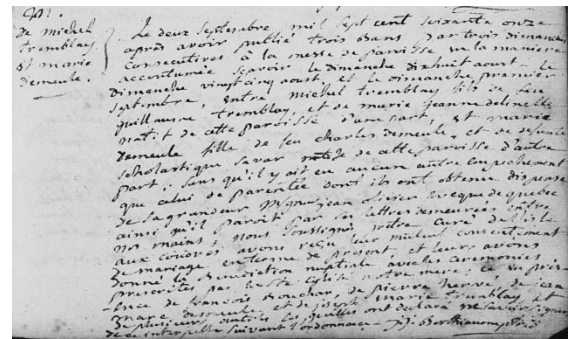 M.
de michel
tremblay
et marie
demeule.
Le deux septembre mil sept cent soixante onze
après avoir publié trois bans par trois dimanches
consecutives à la messe de paroisse en la maniere
accoutumée scavoir le dimanche dixhuit aoust le
dimanche vingt cinq aoust, et le dimanche premier
septembre, entre michel tremblay fils de feu
guillaume tremblay, et de marie jeanne delinelle
natif de cette paroisse d'une part, et marie
demeule fille de feu charles demeule, et de defunte
scholastique savar de cette paroisse d'autre
part, sans qu'il y ait eu aucun autre empechement
que celui de parentée dont ils ont obtenu dispense
de sa grandeur Mgneur jean olivier eveque de quebec
ainsi qu'il paroit par ses lettres demeurées entre
nos mains, nous soussigné prêtre curé de l'isle
aux coudres avons reçu leur mutuel consentement
de mariage de present et leurs avons
donné la benediction nuptiale avec les ceremonies
prescrites par la ste eglise notre mere; ce en presence
de françois bouchar, de pierre herve, de jean
marc demeule et de joseph marie tremblay et
de plusieurs autres lesquelles ont declaré ne scavoir signer
de ce interpellé suivant l'ordonnance